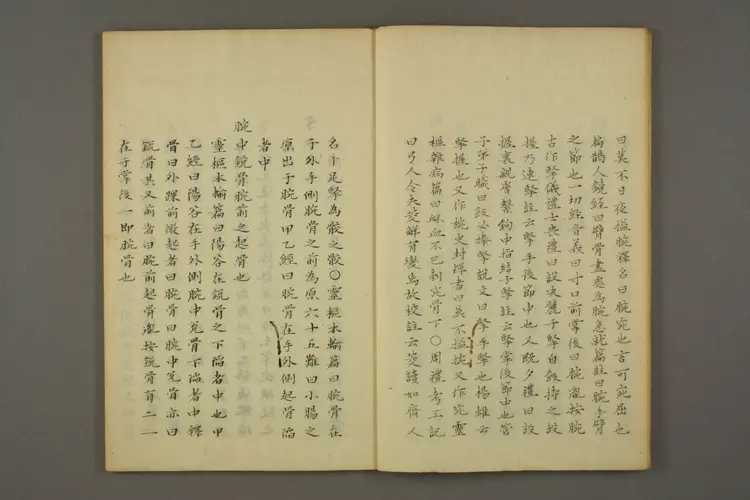 曰莫不日夜搤腕釋名曰腕宛也言可宛屈也
扁鵲人鏡經曰臂骨盡處為腕急就篇註曰腕手臂
之節也一切經音義曰寸口前掌後曰腕胤按腕
古作掔儀禮士喪禮曰設決麗于掔自飯持之設
握乃連掔註云掔手後節中也又既夕禮曰設
握裏親膚繫鉤中指結于掔註云掔掌後節中也管
子弟子職曰飯必捧掔說文曰掔手掔也揚雄云
掔握也又作捥史封禪書曰莫不搤捥又作宛靈
樞雜病篇曰衂血不已刺宛骨下○周禮考工記
曰弓人今夫茭解有變焉故挍註云茭讀如齊人
名手足掔為骹之骹○靈樞本輸篇曰腕骨在
手外側腕骨之前為原六十五難曰小腸之
原出于腕骨甲乙經曰腕骨在手外側起骨陷
者中
腕中銳骨腕前之起骨也
靈樞本輸篇曰陽谷在銳骨之下陷者中也甲
乙經曰陽谷在手外側腕中兌骨下陷者中釋
骨曰外踝前微起者曰腕骨曰腕中兌骨亦曰
銳骨其又前者曰腕前起骨胤按銳骨有二一
在于掌後一即腕骨也